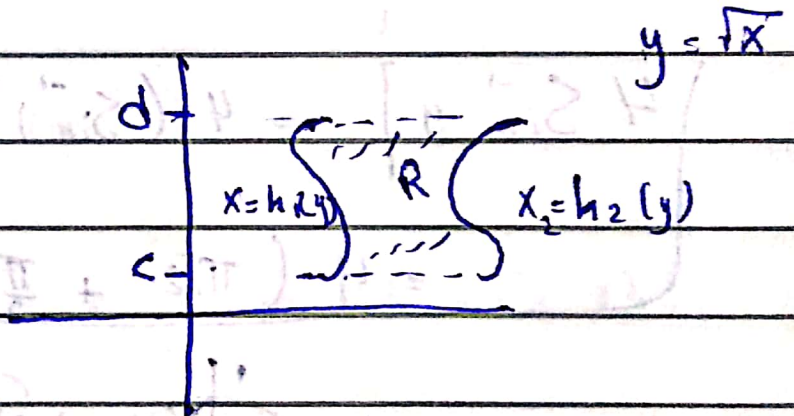 y = √x
d
R
x = h₁(y) x₂ = h₂(y)
c